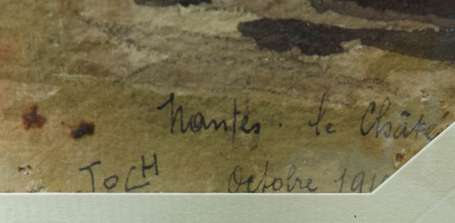 Nantes. le Châte
TocH Octobre 191